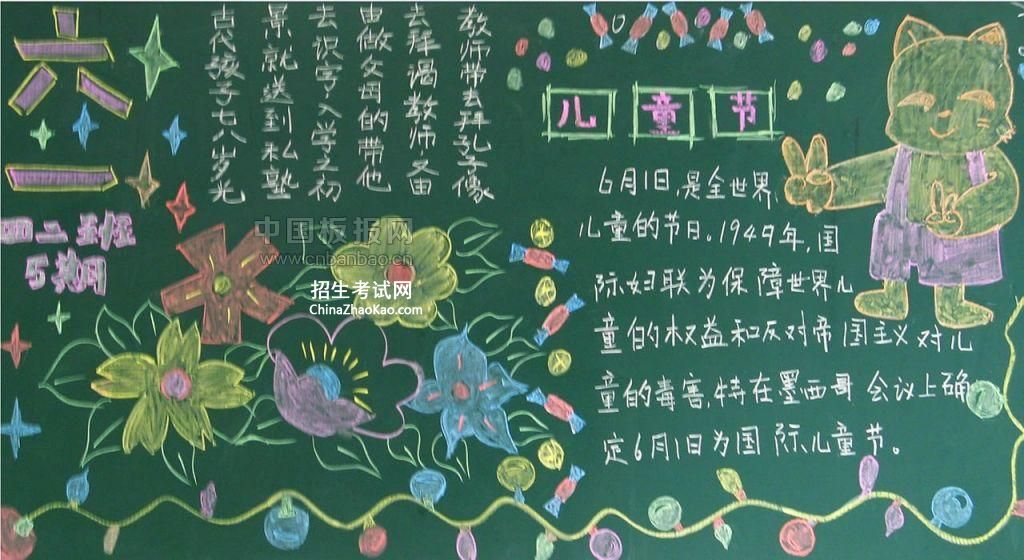 六一
四二班
5期
古代孩子七八岁光
景就送到私塾
去识字入学子初
由做父母的带他
去拜谒教师又由
教师带去拜孔子像
儿童节
6月1日,是全世界
儿童的节日。1949年,国
际妇联为保障世界儿
童的权益和反对帝国主义对儿
童的毒害,特在墨西哥会议上确
定6月1日为国际儿童节。
中国板报网
www.cnbanbao.cn
招生考试网
ChinaZhaoKao.com